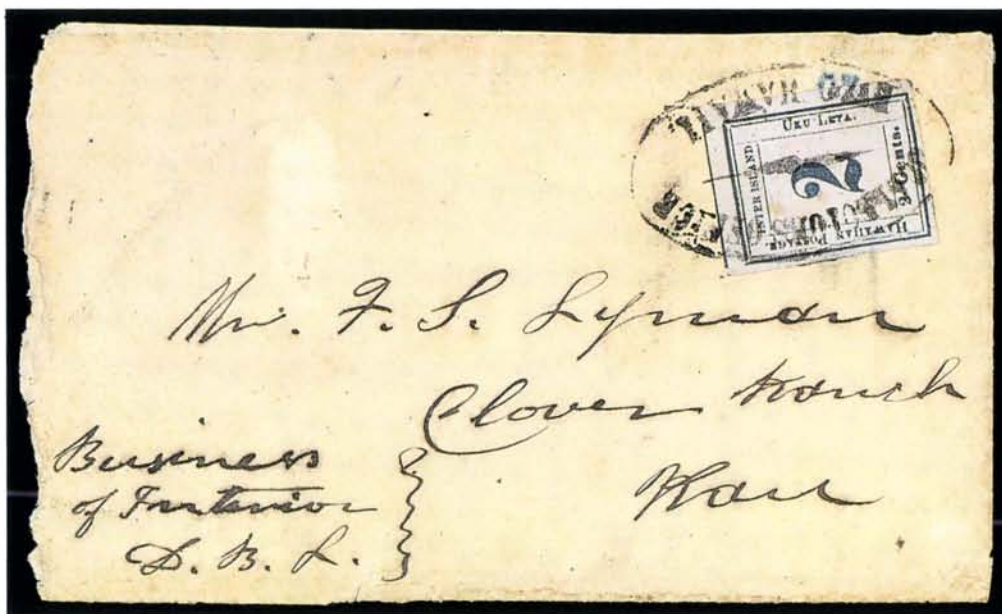 HAWAII.
UKU LETA.
INTER ISLAND
2
2 Cents.
HAWAIIAN POSTAGE.
Mr. F. S. Lyman
Clover Ranch
Kau
Business
of Interior
D. B. L.